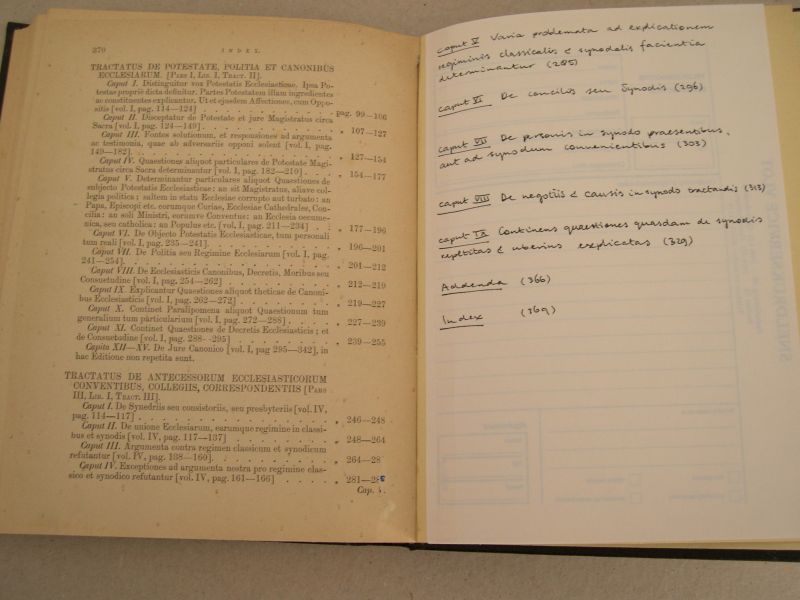 370 INDEX.
TRACTATUS DE POTESTATE, POLITIA ET CANONIBUS
ECCLESIARUM. [PARS I, LIB. I, TRACT. II].
Caput I. Distinguitur vox Potestatis Ecclesiasticae. Ipsa Po-
testas proprie dicta definitur. Partes Potestatem illam ingredientes
ac constituentes explicantur. Ut et ejusdem Affectiones, cum Oppo-
sitis [vol. I, pag. 114—124] . . . pag. 99—106
Caput II. Disceptatur de Potestate et jure Magistratus circa
Sacra [vol. I, pag. 124—149] . . . „ 107—127
Caput III. Fontes solutionum, et responsiones ad argumenta
ac testimonia, quae ab adversariis opponi solent [vol. I, pag.
149—182]. . . . „ 127—154
Caput IV. Quaestiones aliquot particulares de Potestate Magi-
stratus circa Sacra determinantur [vol. I, pag. 182—210] . . „ 154—177
Caput V. Determinantur particulares aliquot Quaestiones de
subjecto Potestatis Ecclesiasticae: an sit Magistratus, aliave col-
legia politica: saltem in statu Ecclesiae corrupto aut turbato: an
Papa, Episcopi etc. eorumque Curiae, Ecclesiae Cathedrales, Con-
cilia: an soli Ministri, eorumve Conventus: an Ecclesia oecume-
nica, seu catholica: an Populus etc. [vol. I, pag. 211—234] . . „ 177—196
Caput VI. De Objecto Potestatis Ecclesiasticae, tum personali
tum reali [vol. I, pag. 235—241]. . . . „ 196—201
Caput VII. De Politia seu Regimine Ecclesiarum [vol. I, pag.
241—254]. . . . „ 201—212
Caput VIII. De Ecclesiasticis Canonibus, Decretis, Moribus seu
Consuetudine [vol. I, pag. 254—262] . . . „ 212—219
Caput IX. Explicantur Quaestiones aliquot theticae de Canoni-
bus Ecclesiasticis [vol. I, pag. 262—272] . . . „ 219—227
Caput X. Continet Paralipomena aliquot Quaestionum tum
generalium tum particularium [vol. I, pag. 272—288] . . . „ 227—239
Caput XI. Continet Quaestiones de Decretis Ecclesiasticis; et
de Consuetudine [vol. I, pag. 288—295] . . . „ 239—255
Capita XII—XV. De Jure Canonico [vol. I, pag 295—342], in
hac Editione non repetita sunt.
TRACTATUS DE ANTECESSORUM ECCLESIASTICORUM
CONVENTIBUS, COLLEGIIS, CORRESPONDENTIIS [PARS
III, LIB. I, TRACT. III].
Caput I. De Synedriis seu consistoriis, seu presbyteriis [vol. IV,
pag. 114—117] . . . „ 246—248
Caput II. De unione Ecclesiarum, earumque regimine in classi-
bus et synodis [vol. IV, pag. 117—137] . . . „ 248—264
Caput III. Argumenta contra regimen classicum et synodicum
refutantur [vol. IV, pag. 138—160]. . . . „ 264—28
Caput IV. Exceptiones ad argumenta nostra pro regimine clas-
sico et synodico refutantur [vol. IV, pag. 161—166] . . . „ 281—285
Cap. V.
caput V Varia problemata ad explicationem
regiminis classicalis & synodalis facientia
determinantur (285)
caput VI De conciliis seu Synodis (296)
caput VII De personis in synodo praesentibus,
aut ad synodum convenientibus (303)
caput VIII De negotiis & causis in synodo tractandis (313)
caput IX Continens quaestiones quasdam de synodis
repetitas & uberius explicatas (329)
Addenda (366)
Index (369)